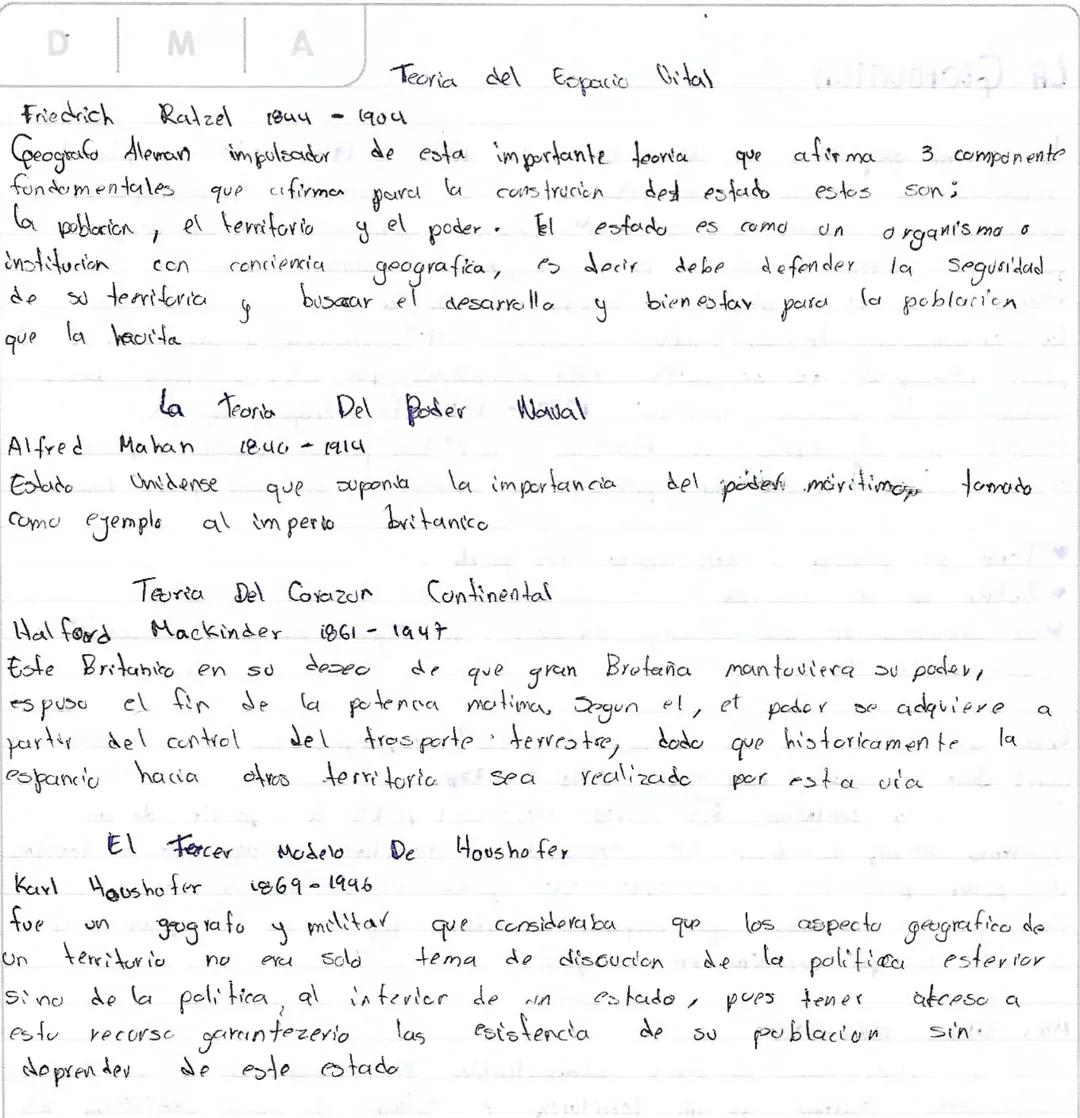 D M A
Teoria del Espacio Vital
Friedrich Ratzel 1844 - 1904
Geografo Aleman impulsador de esta importante teoria que afirma 3 componente
fundamentales que afirma para la construcion del estado estos son:
la poblacion, el territorio y el poder. El estado es como un organismo o
institucion con conciencia geografica, es decir debe defender la seguridad
de su territorio y buscar el desarrollo y bienestar para la poblacion
que la havita
La teoria Del Poder Naval
Alfred Mahan 1840 - 1914
Estado Unidense que suponia la importancia del poder maritimo, tomado
como ejemplo al imperio britanico
Teoria Del Corazon Continental
Halford Mackinder 1861 - 1947
Este Britanico en su deseo de que gran Bretaña mantuviera su poder,
espuso el fin de la potencia matima, Segun el, el poder se adquiere a
partir del control del trasporte terrestre, dado que historicamente la
espancio hacia otros territorio sea realizado por esta via
El Tercer Modelo De Houshofer
Karl Houshofer 1869 - 1946
fue un geografo y militar que consideraba que los aspecto geografico de
un territorio no era solo tema de discucion de la politica esterior
sino de la politica, al interior de un estado, pues tener acceso a
esto recurso garantezerio las esistencia de su poblacion sin
deprender de este estado